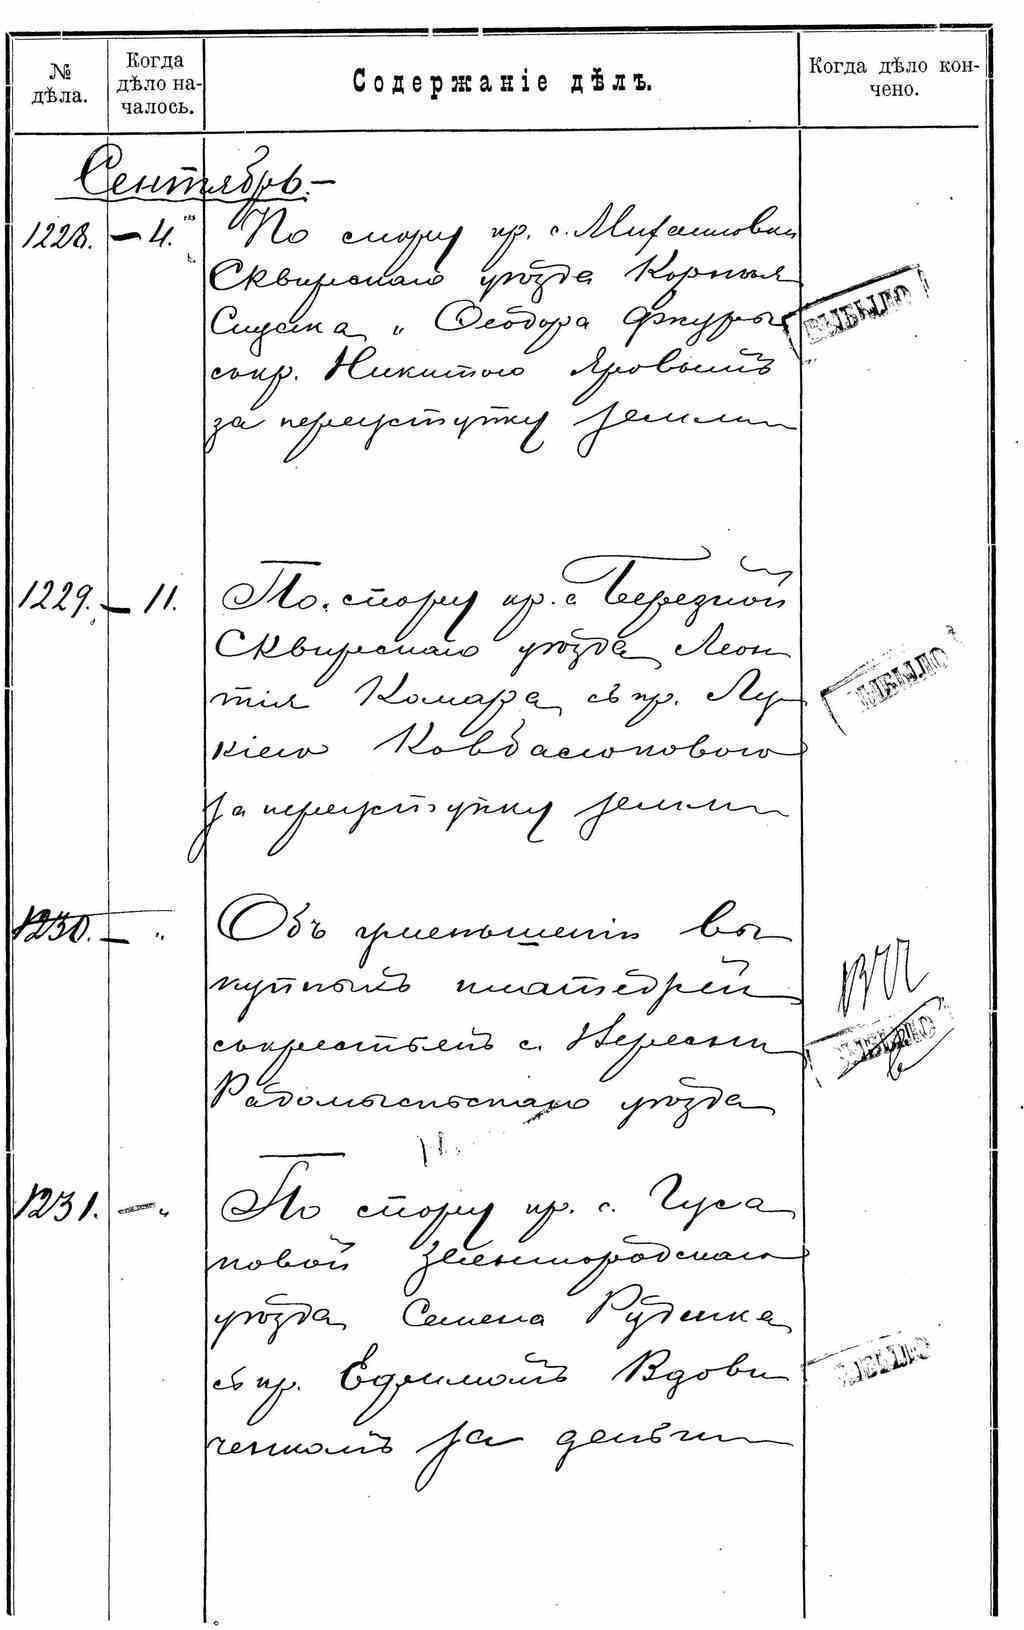 № дѣла.
Когда дѣло на-
чалось.
Содержаніе дѣлъ.
Когда дѣло кон-
чено.
Сентябрь.—
1228. — 4.
По спору кр. с. Михайловки
Сквирскаго уѣзда Корнія
и Ѳеодора
съ кр. Никитою Яровымъ
за переуступку земли
ВЫБЫЛО
1229. — 11.
По спору кр. с. Березной
Сквирскаго уѣзда Леон
тія Комара съ кр. Лу
кіею Ковбасюковою
за переуступку земли
ВЫБЫЛО
1230. — „
Объ уменьшеніи вы
купныхъ платежей
съ крестьянъ с. Вересни
Радомысльскаго уѣзда
ВЫБЫЛО
1231. — „
По спору кр. с. Гуса
ковой Звенигородскаго
уѣзда Семена Руденка
съ кр. Ефимомъ Вдови
ченкомъ за деньги
ВЫБЫЛО